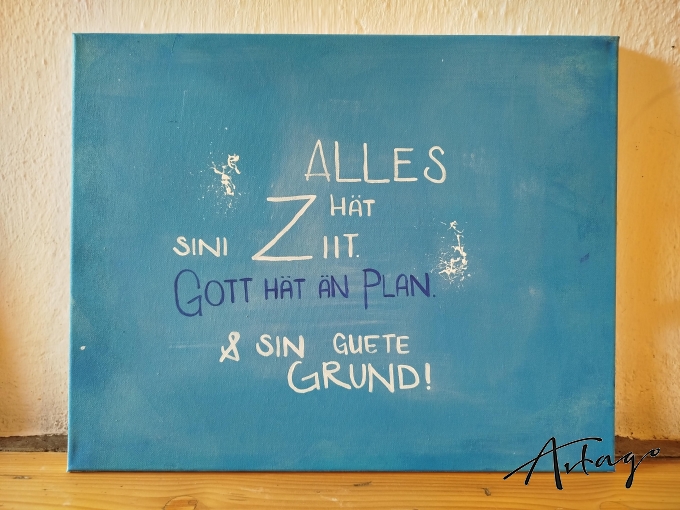 ALLES
HÄT
SINI ZIIT.
GOTT HÄT ÄN PLAN.
& SIN GUETE
GRUND!
Artago